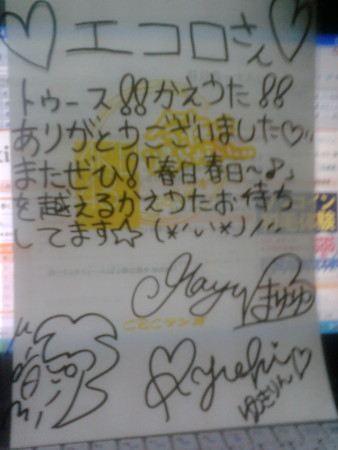 ♡エコロさん♡
トゥース!!かえうた!!
ありがとうございました♡
またぜひ!「春日春日〜♪」
を越えるかえうたお待ち
してます☆(*'い'*)ノ
Mayu まゆゆ
Yuki♡
ゆきりん